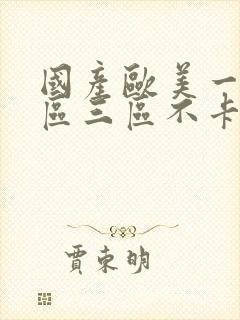 國產歐美一
區三區不卡
賈束明